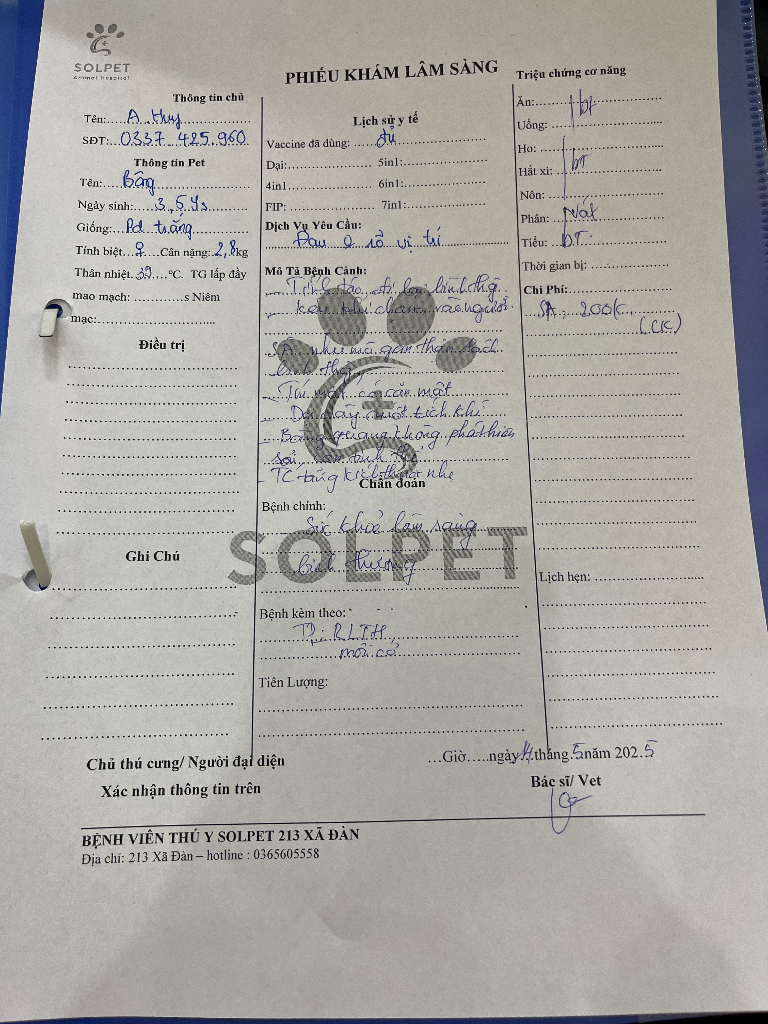 SOLPET
Animal Hospital
PHIẾU KHÁM LÂM SÀNG
Thông tin chủ
Tên: A Huy
SĐT: 0337 425 960
Thông tin Pet
Tên: Bông
Ngày sinh: 3,5 ys
Giống: Pd trắng
Tính biệt: ♀ Cân nặng: 2,8kg
Thân nhiệt: 39 °C. TG lấp đầy
mao mạch: s Niêm
mạc:
Điều trị
Ghi Chú
Lịch sử y tế
Vaccine đã dùng: đủ
Dại: 5in1:
4in1 6in1:
FIP: 7in1:
Dịch Vụ Yêu Cầu:
Đau 0 rõ vị trí
Mô Tả Bệnh Cảnh:
Tỉnh táo, đi lại bình thg
kêu khi chạm vào người
SA nhu mô gan thận lách
bình thg
Túi mật có cặn mật
Dạ dày ruột tích khí
Bàng quang không phát hiện
sỏi
TC tăng kích thước nhẹ
Chẩn đoán
Bệnh chính:
Sức khoẻ lâm sàng
bình thường
SOLPET
Bệnh kèm theo:
RLTH
Tiên Lượng:
Triệu chứng cơ năng
Ăn: bt
Uống:
Ho:
Hắt xì: bT
Nôn:
Phân: Nát
Tiểu: bT
Thời gian bị:
Chi Phí:
SA: 200k
(CK)
Lịch hẹn:
Chủ thú cưng/ Người đại diện
Xác nhận thông tin trên
…Giờ…..ngày 14 tháng 5 năm 2025
Bác sĩ/ Vet
BỆNH VIÊN THÚ Y SOLPET 213 XÃ ĐÀN
Địa chỉ: 213 Xã Đàn – hotline : 0365605558